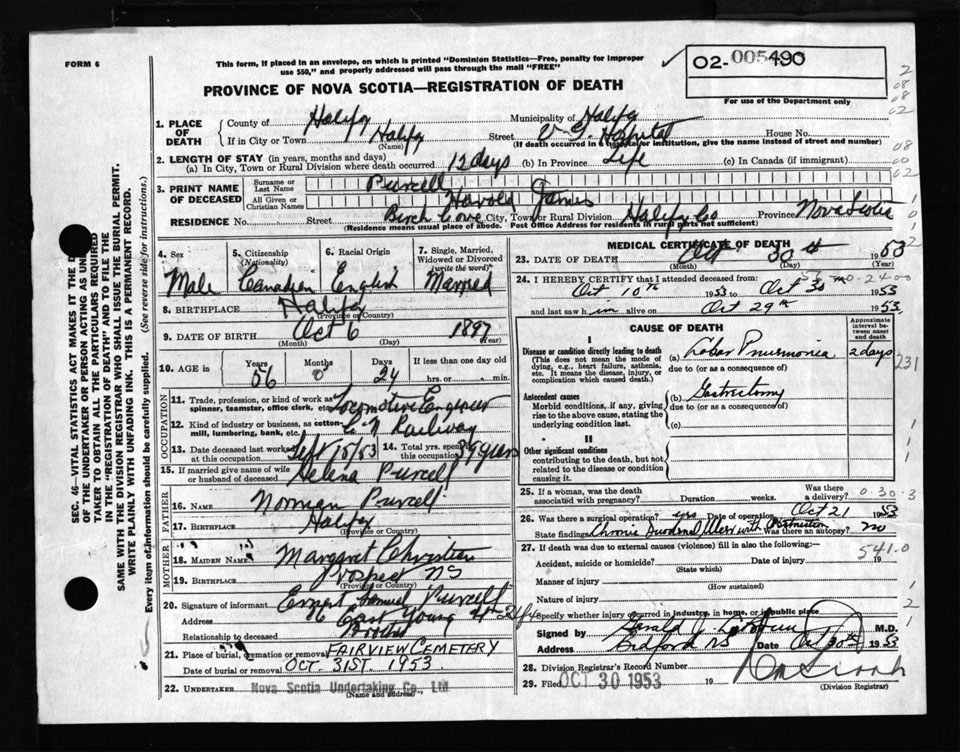 FORM 6
This form, if placed in an envelope, on which is printed "Dominion Statistics—Free, penalty for improper
use $50," and properly addressed will pass through the mail "FREE"
02-005490
For use of the Department only
PROVINCE OF NOVA SCOTIA—REGISTRATION OF DEATH
1. PLACE OF DEATH
County of Halifax Municipality of Halifax
If in City or Town Halifax (Name) Street V. G. Hospital House No.
(If death occurred in a hospital or institution, give the name instead of street and number)
2. LENGTH OF STAY (in years, months and days)
(a) In City, Town or Rural Division where death occurred 12 days (b) In Province Life (c) In Canada (if immigrant)
3. PRINT NAME OF DECEASED
Surname or Last Name Purcell
All Given or Christian Names Harold James
RESIDENCE No. Street Birch Cove City, Town or Rural Division Halifax Co Province Nova Scotia
(Residence means usual place of abode. Post Office Address for residents in rural parts not sufficient)
4. Sex Male
5. Citizenship (Nationality) Canadian
6. Racial Origin English
7. Single, Married, Widowed or Divorced (write the word) Married
8. BIRTHPLACE Halifax
(Province or Country)
9. DATE OF BIRTH Oct 6 1897
(Month) (Day) (Year)
10. AGE in Years 56 Months 0 Days 24 If less than one day old
hrs. or min.
OCCUPATION
11. Trade, profession, or kind of work as spinner, teamster, office clerk, etc. Locomotive Engineer
12. Kind of industry or business, as cotton-mill, lumbering, bank, etc. C N Railway
13. Date deceased last worked at this occupation Sept 15/53 14. Total yrs. spent in this occupation 39 years
15. If married give name of wife or husband of deceased Helena Purcell
FATHER
16. NAME Norman Purcell
17. BIRTHPLACE Halifax
(Province or Country)
MOTHER
18. MAIDEN NAME Margaret Christian
19. BIRTHPLACE Prospect NS
(Province or Country)
20. Signature of informant Ernest Samuel Purcell
Address East Young St
Relationship to deceased Brother
21. Place of burial, cremation or removal FAIRVIEW CEMETERY
Date of burial or removal OCT. 31ST. 1953.
22. UNDERTAKER Nova Scotia Undertaking Co., Ltd
(Name and address)
MEDICAL CERTIFICATE OF DEATH
23. DATE OF DEATH Oct 30th 1953
(Month) (Day)
24. I HEREBY CERTIFY that I attended deceased from:
Oct 10th 1953 to Oct 30 1953
and last saw him alive on Oct 29th 1953
CAUSE OF DEATH
Approximate interval between onset and death
I
Disease or condition directly leading to death
(This does not mean the mode of dying, e.g., heart failure, asthenia, etc. It means the disease, injury, or complication which caused death.)
(a) Lobar Pneumonia 2 days
due to (or as a consequence)
Antecedent causes
Morbid conditions, if any, giving rise to the above cause, stating the underlying condition last.
(b) Gastrectomy
due to (or as a consequence)
(c)
II
Other significant conditions
contributing to the death, but not related to the disease or condition causing it.
25. If a woman, was the death associated with pregnancy? Duration weeks. Was there a delivery?
0.30.3
26. Was there a surgical operation? yes Date Oct 21 1953
State findings Chronic Duodenal Ulcer with Obstruction Was there an autopsy? no
27. If death was due to external causes (violence) fill in also the following:
541.0
Accident, suicide or homicide? Date of injury 19
(State which)
Manner of injury
(How sustained)
Nature of injury
Specify whether injury occurred in industry, in home, or in public place
Signed by Gerald J. M.D.
Address Bedford NS Date Oct 30th 1953
28. Division Registrar's Record Number
29. Filed OCT 30 1953 19
(Division Registrar)
SEC. 46—VITAL STATISTICS ACT MAKES IT THE
OF THE UNDERTAKER OR PERSON ACTING AS
TAKER TO OBTAIN ALL THE PARTICULARS REQUIRED
IN THE "REGISTRATION OF DEATH" AND TO FILE THE
SAME WITH THE DIVISION REGISTRAR WHO SHALL ISSUE THE BURIAL PERMIT.
WRITE PLAINLY WITH UNFADING INK. THIS IS A PERMANENT RECORD.
Every item of information should be carefully supplied. (See reverse side for instructions.)
231